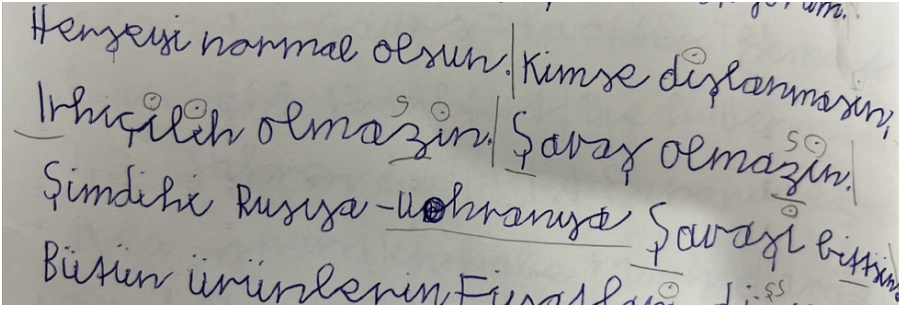 Herşeyi normal olsun. Kimse dışlanmasın,
Irkıçılik olmazin. Şavaş olmazin.
Şimdiki Rusya-Ukranya Şavaşi bittsin.
Bütün ürünlerin Fiyatlari